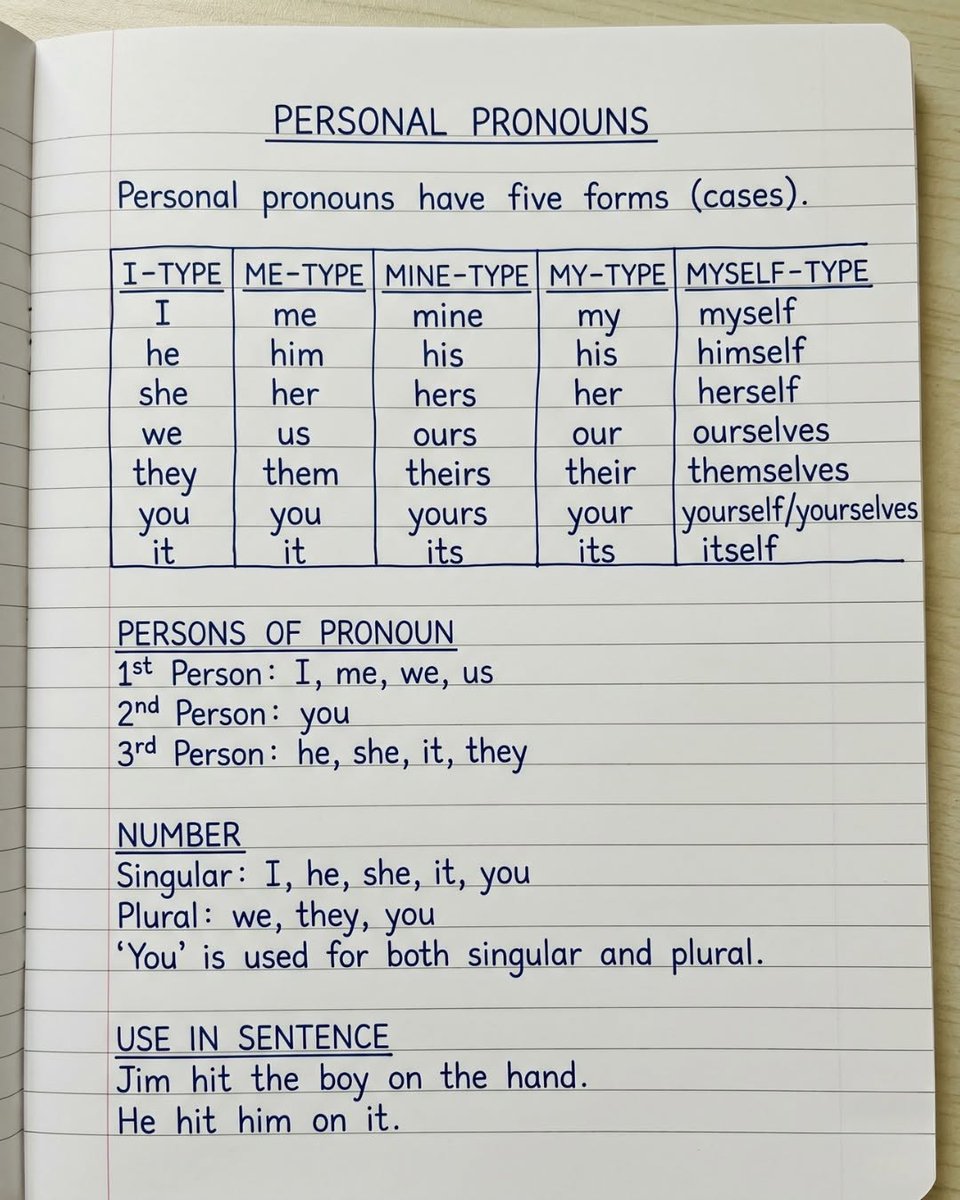 PERSONAL PRONOUNS
Personal pronouns have five forms (cases).
I-TYPE ME-TYPE MINE-TYPE MY-TYPE MYSELF-TYPE
I me mine my myself
he him his his himself
she her hers her herself
we us ours our ourselves
they them theirs their themselves
you you yours your yourself/yourselves
it it its its itself
PERSONS OF PRONOUN
1st Person: I, me, we, us
2nd Person: you
3rd Person: he, she, it, they
NUMBER
Singular: I, he, she, it, you
Plural: we, they, you
‘You’ is used for both singular and plural.
USE IN SENTENCE
Jim hit the boy on the hand.
He hit him on it.